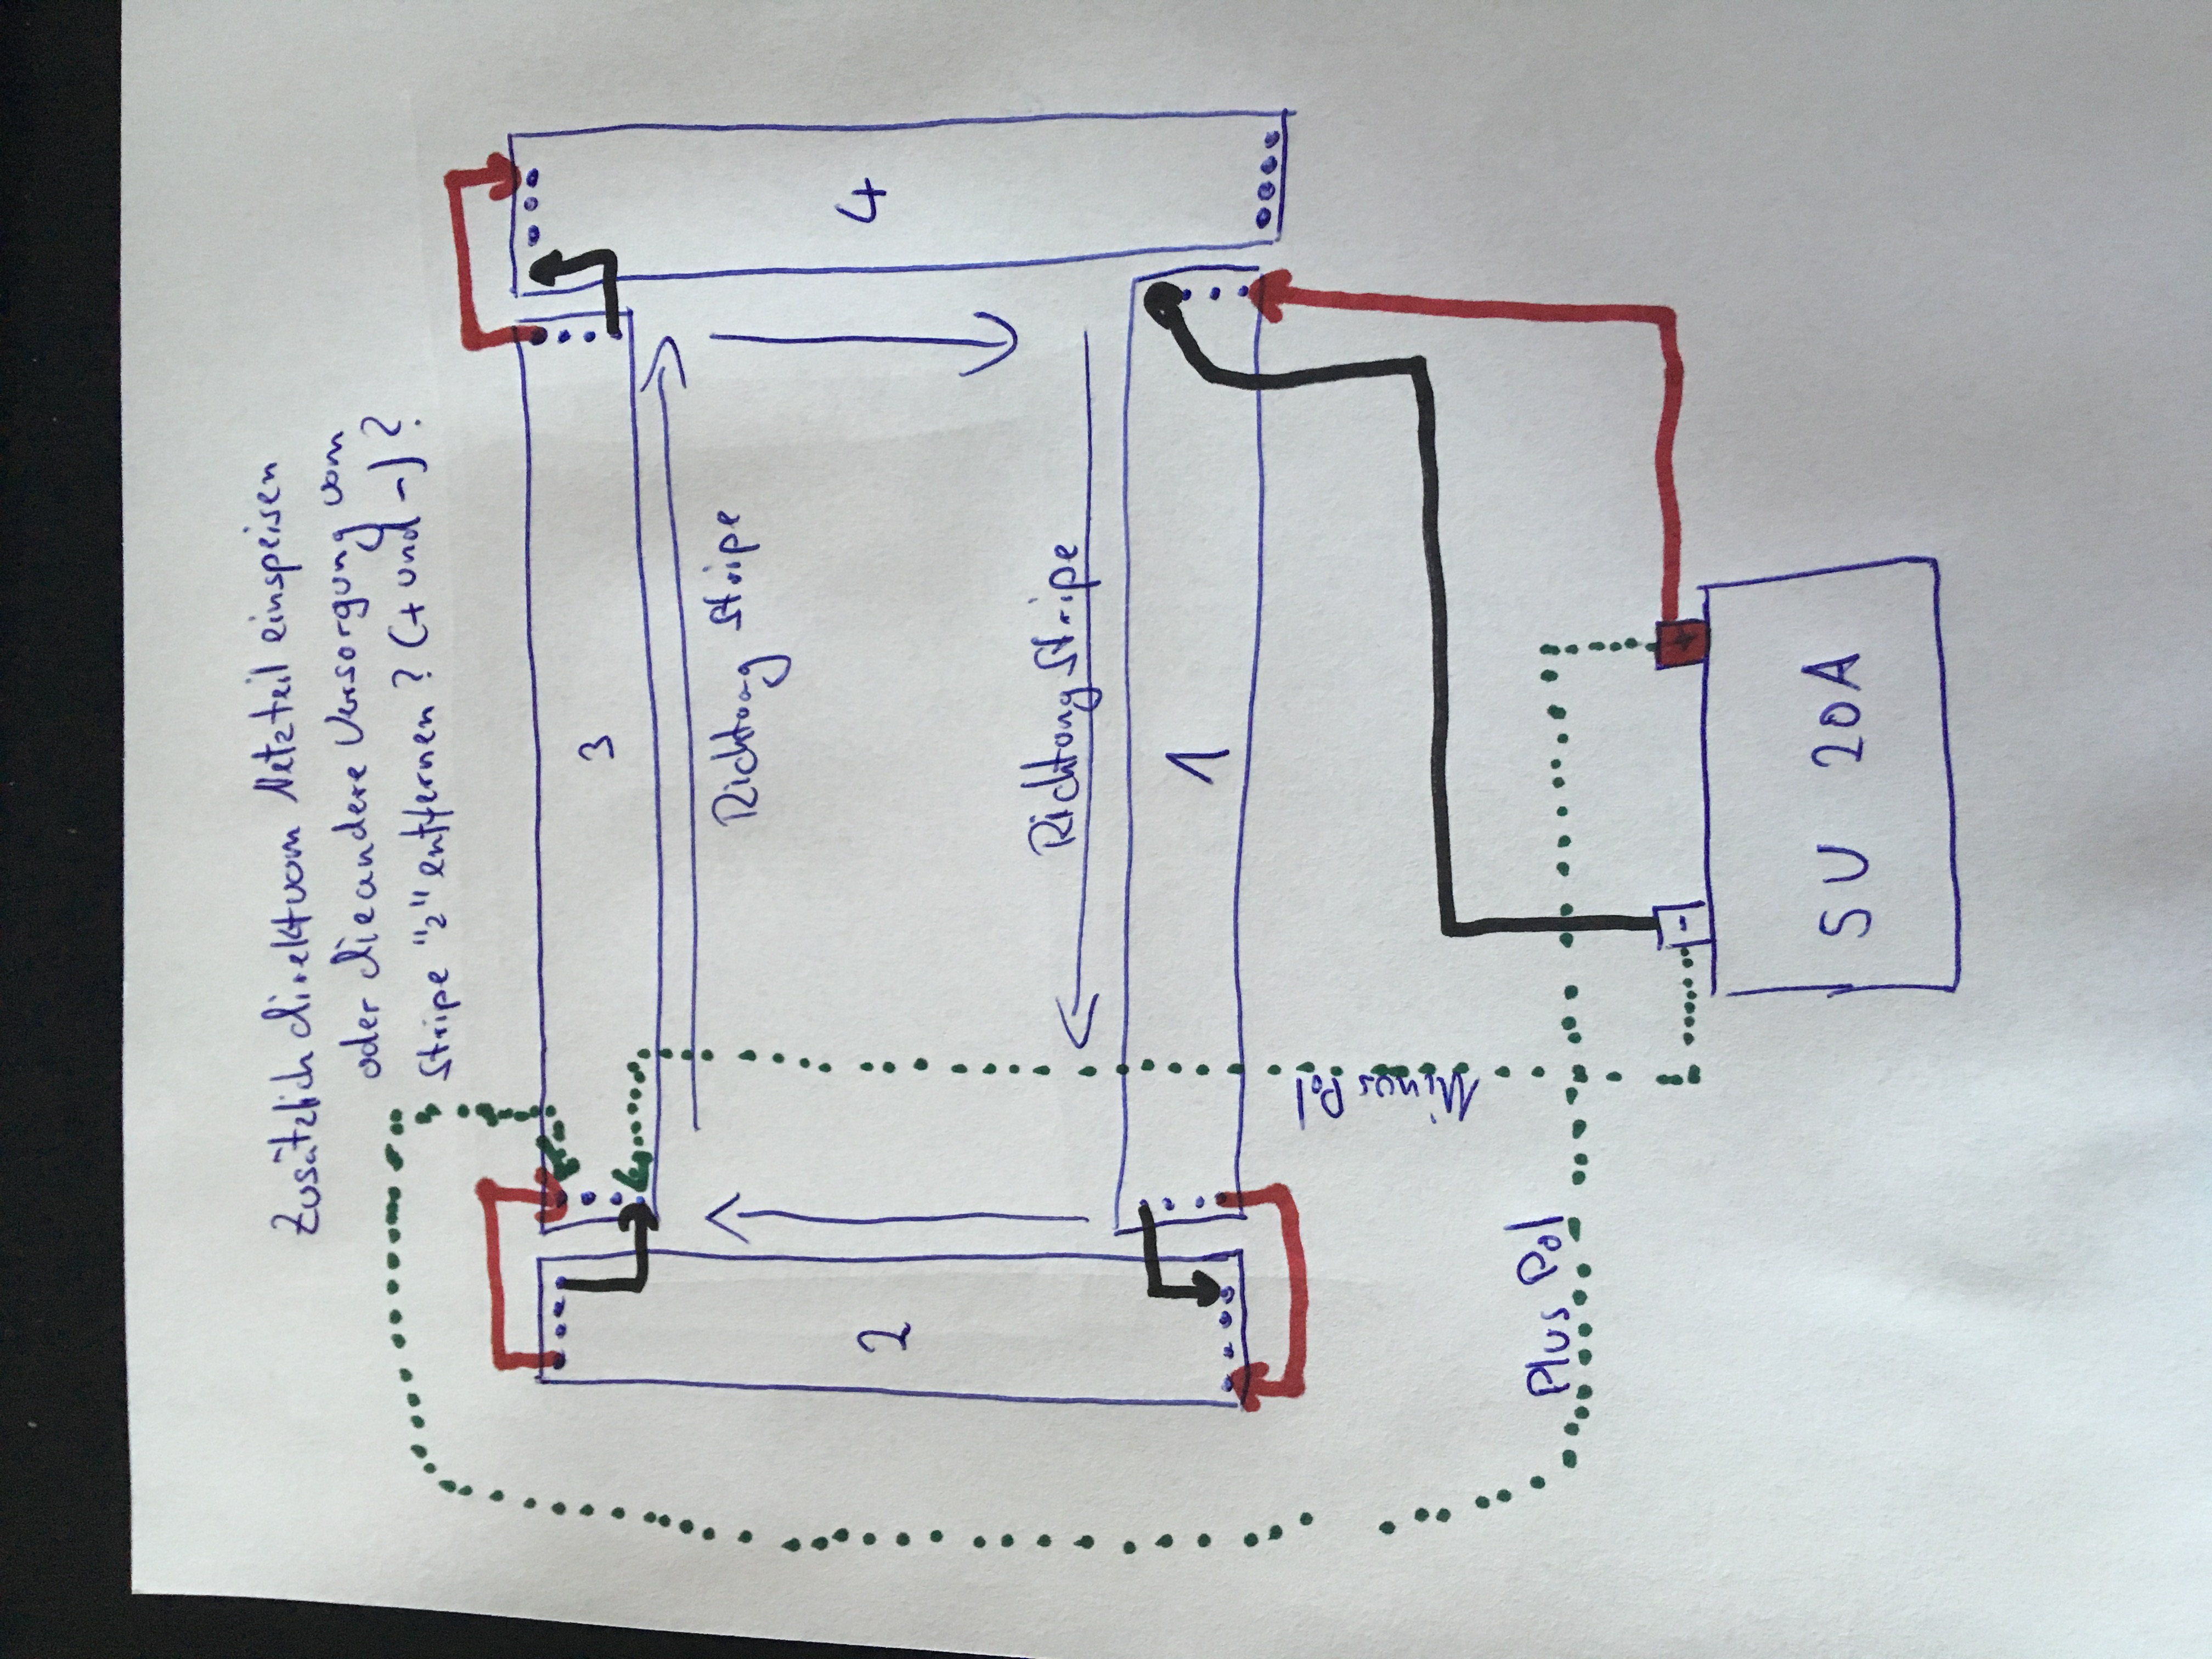 Zusätzlich direkt vom Netzteil einspeisen
oder die andere Versorgung vom
Stripe "2" entfernen? (+ und -)?
3
Richtung Stripe
4
Richtung Stripe
1
2
Minus Pol
Plus Pol
+
-
5V 20A